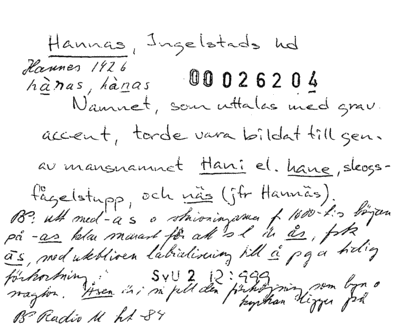 Hannas, Ingelstads hd
Hannes 1426
hànas, hànas 00026204
Namnet, som uttalas med grav
accent, torde vara bildat till gen.
av mansnamnet Hani el. hane, skogs-
fågelstupp, och näs (jfr Hannäs).
utt med -as o skrivningarna f. 1600-t:s början
på -as klar för att s l är ås,
ås, med utbliven labialisering till å pga tidig
förkortning i
SvU2 12:999
även
byn o
kyrkan ligger på
Radio M ht -84